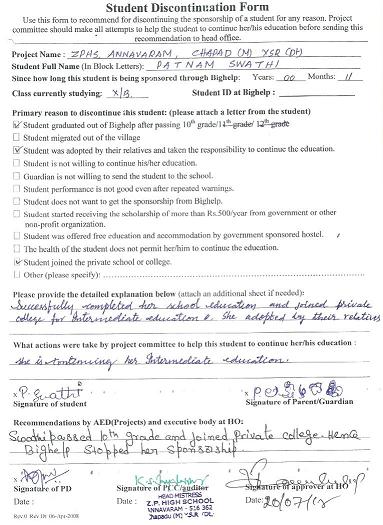 Student Discontinuation Form
Use this form to recommend for discontinuing the sponsorship of a student for any reason. Project
committee should make all attempts to help the student to continue her/his education before sending this
recommendation to head office.
Project Name : ZPHS, ANNAVARAM, CHAPAD (M) YSR (Dt)
Student Full Name (In Block Letters): PATNAM SWATHI
Since how long this student is being sponsored through Bighelp: Years: 00 Months: 11
Class currently studying: X/B Student ID at Bighelp :
Primary reason to discontinue the student: (please attach a letter from the student)
Student graduated out of Bighelp after passing 10th grade/11th grade/ 12th grade
Student migrated out of the village
Student was adopted by their relatives and taken the responsibility to continue the education.
Student is not willing to continue his/her education.
Guardian is not willing to send the student to the school.
Student performance is not good even after repeated warnings.
Student does not want to get the sponsorship from Bighelp.
Student started receiving the scholarship of more than Rs.500/year from government or other
non-profit organization.
Student was offered free education and accommodation by government sponsored hostel.
The health of the student does not permit her/him to continue the education.
Student joined the private school or college.
Other (please specify):
Please provide the detailed explanation below (attach an additional sheet if needed):
Successfully completed her school education and joined private
college for Intermediate education &. She adopted by their relatives
What actions were take by project committee to help this student to continue her/his education :
She is continuing her Intermediate education.
x P. Swathi x
Signature of student Signature of Parent/Guardian
Recommendations by AED(Projects) and executive body at HO:
Swathi passed 10th grade and joined Private college. Hence
Bighelp stopped her sponsorship.
x x
Signature of PD Signature of PLC/auditor Signature of approver at HO
Date : Date : HEAD MISTRESS Date: 20/07/12
Z.P. HIGH SCHOOL
ANNAVARAM - 516 362
Chapadu (M) YSR (Dt.
Rev.0 Rev Dt: 06-Apr-2008